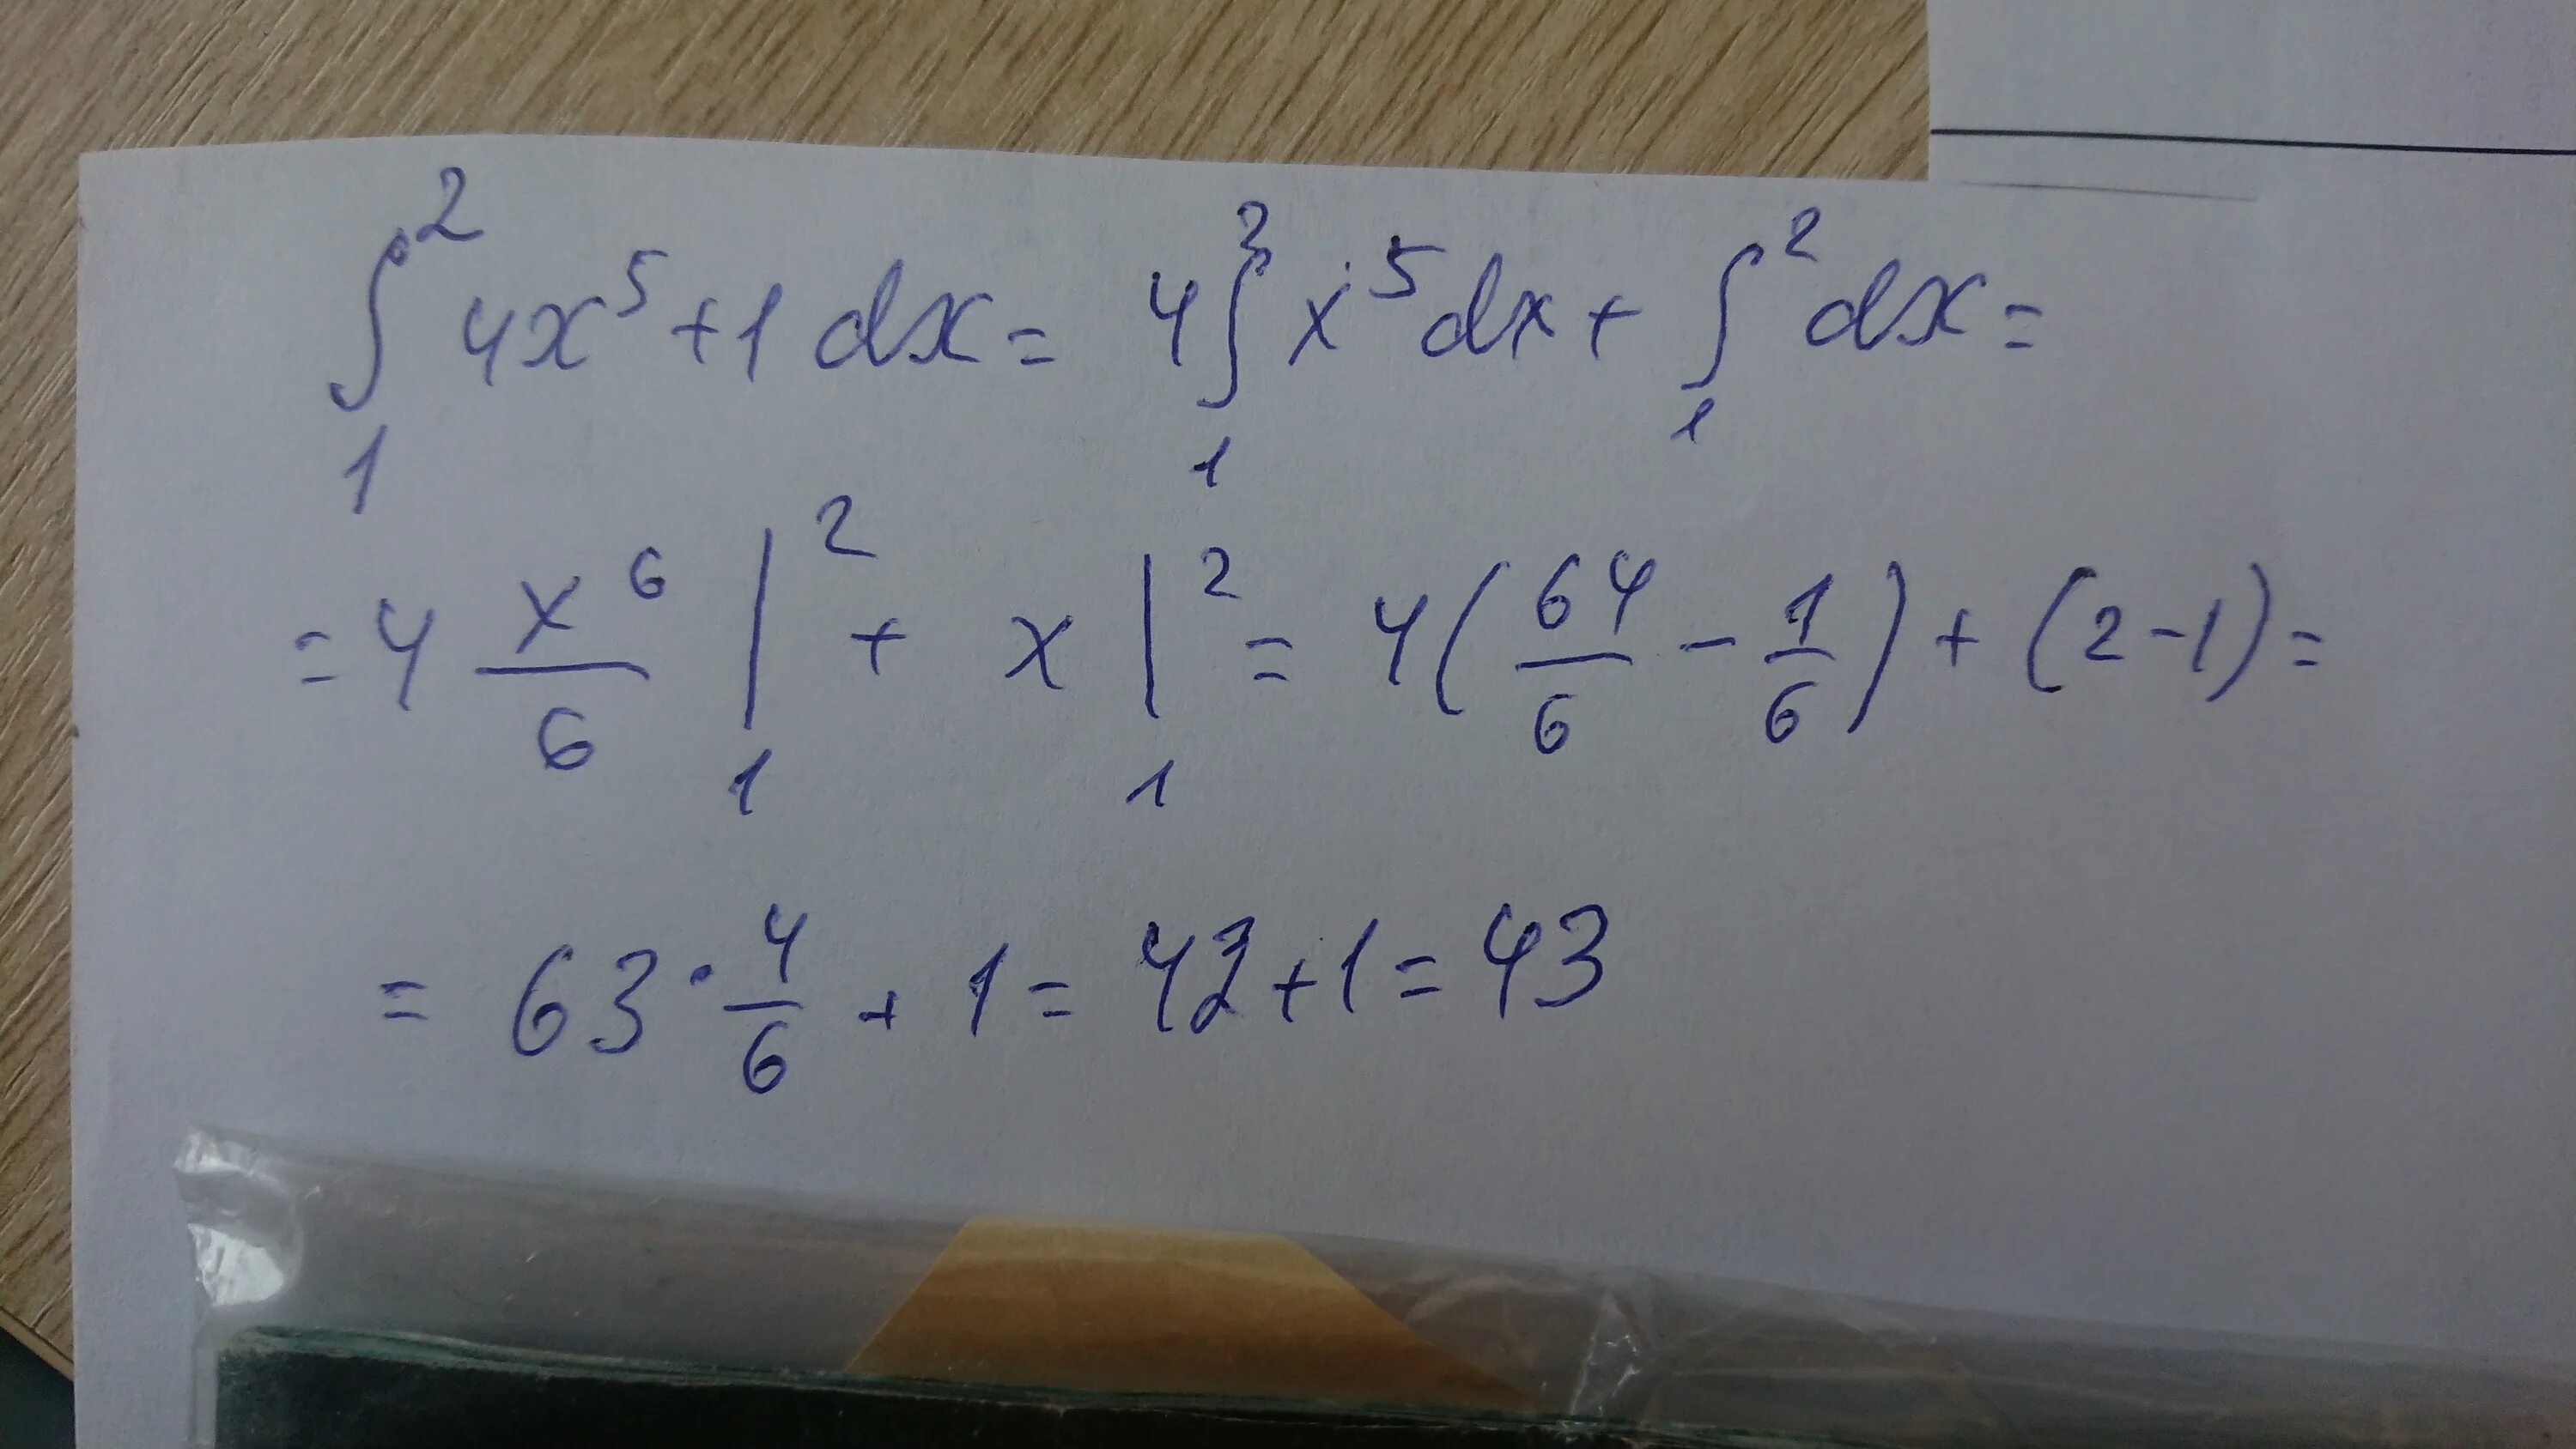 ∫₁² 4x⁵+1 dx = 4∫₁² x⁵dx + ∫₁² dx =
= 4 x⁶/6 |₁² + x |₁² = 4(64/6 - 1/6) + (2-1) =
= 63 · 4/6 + 1 = 42+1 = 43